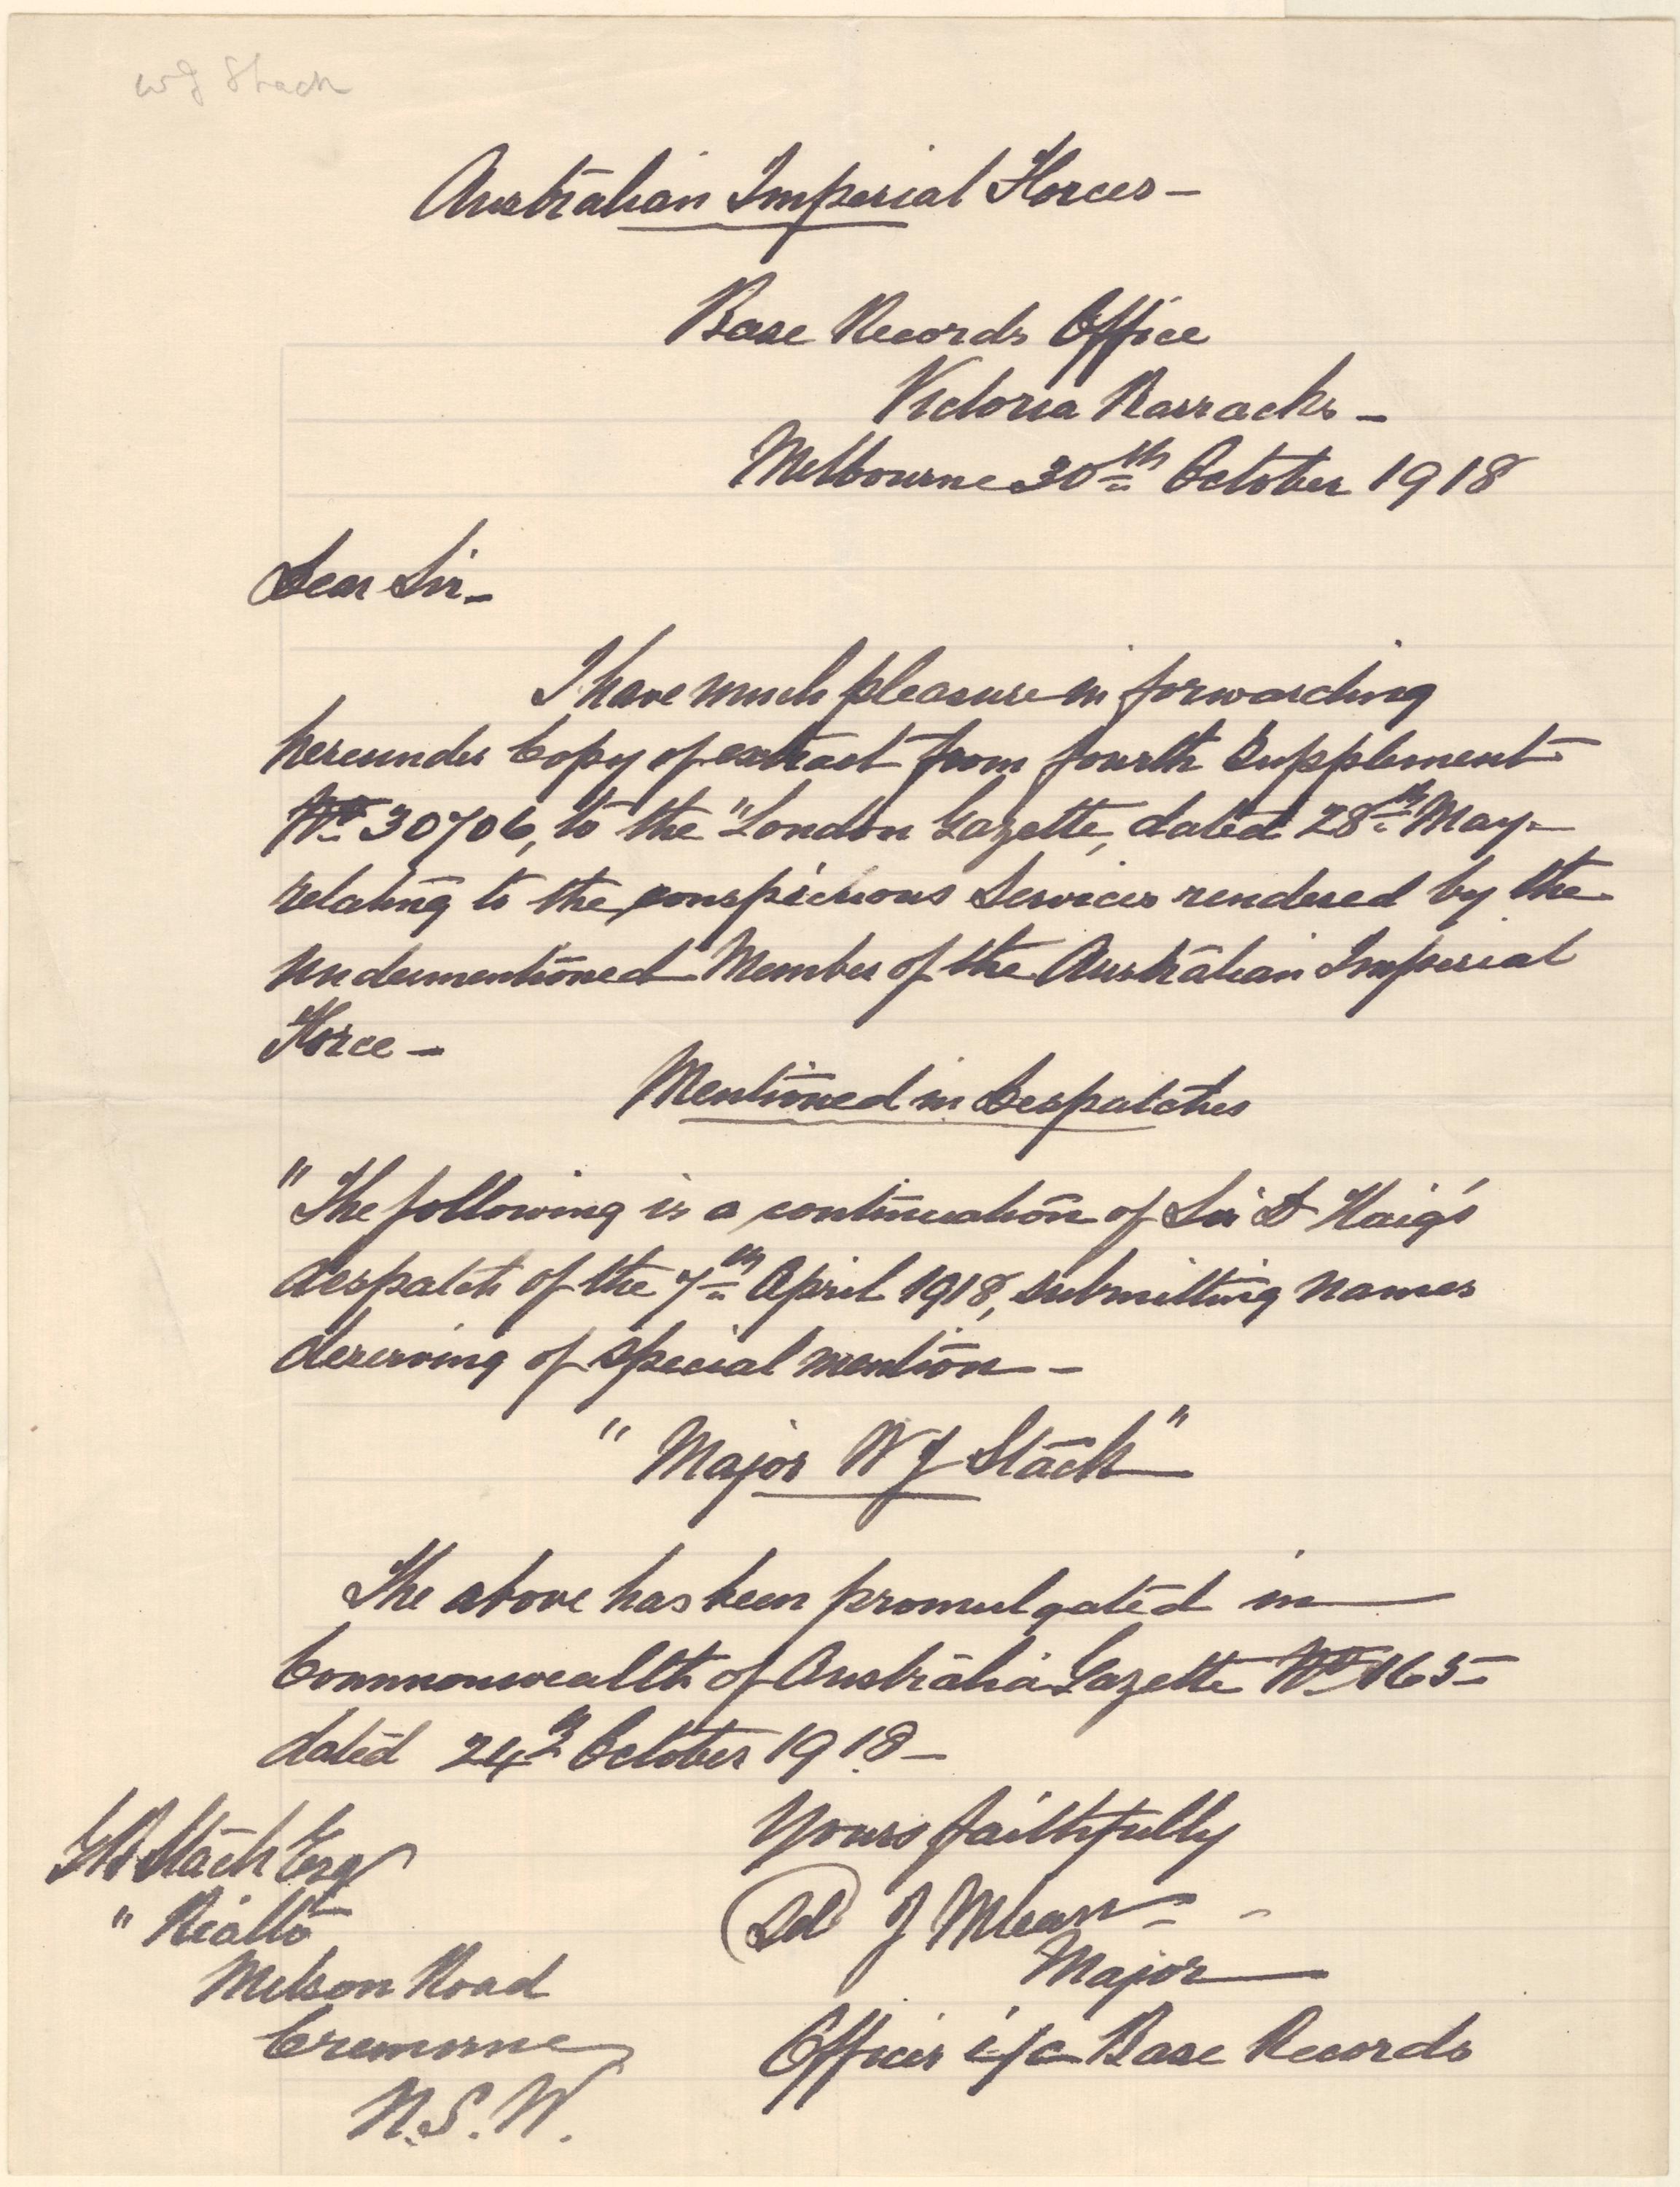 W J Stack
Australian Imperial Forces –
Base Records Office
Victoria Barracks –
Melbourne 30th October 1918
Dear Sir –
I have much pleasure in forwarding
hereunder Copy of extract from fourth Supplement
No 30706, to the "London Gazette, dated 28th May –
relating to the conspicuous Services rendered by the
undermentioned Member of the Australian Imperial
Force –
Mentioned in Despatches
"The following is a continuation of Sir D Haig's
despatch of the 7th April 1918, submitting names
deserving of special mention –
"Major W J Stack"
The above has been promulgated in
Commonwealth of Australia Gazette No 165 –
dated 24th October 1918 –
Yours faithfully
(Sd) J McLean
Major
Officer i/c Base Records
Stack Esq
"Rialto
Milson Road
Cremorne
N.S.W.